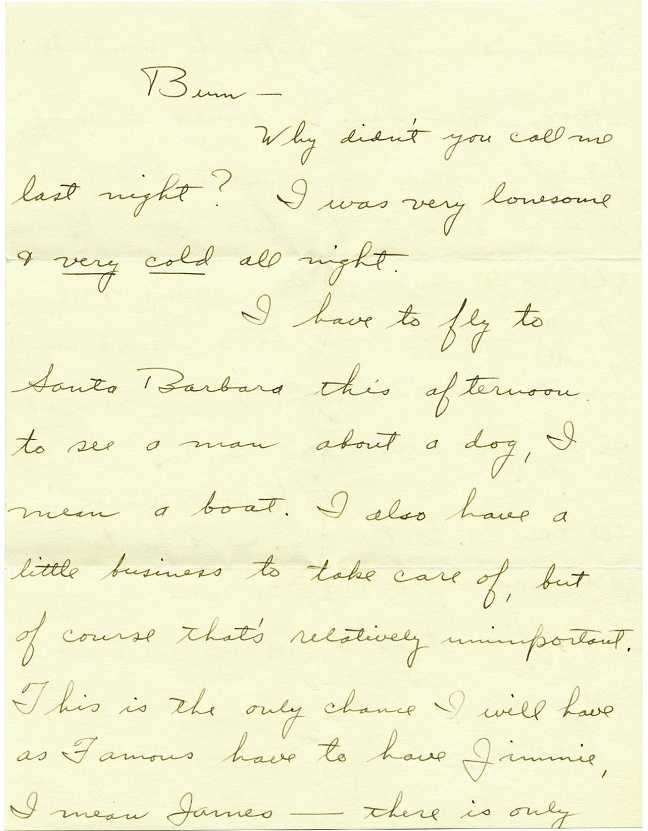 Bum —
Why didn't you call me
last night? I was very lonesome
& very cold all night.
I have to fly to
Santa Barbara this afternoon
to see a man about a dog, I
mean a boat. I also have a
little business to take care of, but
of course that's relatively unimportant.
This is the only chance I will have
as Famous have to have Jimmie,
I mean James — there is only